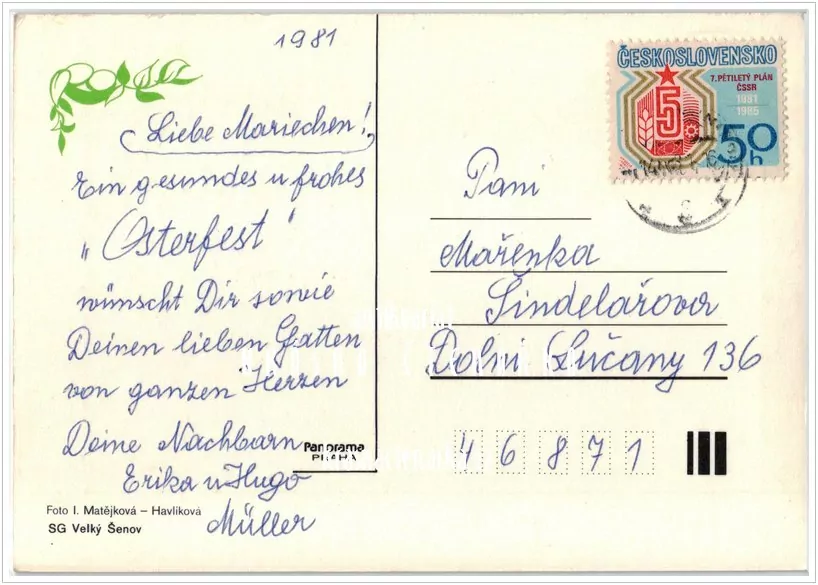 1981
Liebe Mariechen!
Ein gesundes u frohes
„Osterfest"
wünscht Dir sowie
Deinen lieben Gatten
von ganzen Herzen
Deine Nachbarn
Erika u Hugo
Müller
Panorama
PRAHA
Foto I. Matějková – Havlíková
SG Velký Šenov
ČESKOSLOVENSKO
7. PĚTILETÝ PLÁN
ČSSR
1981
1985
5
50
h
Paní
Mařenka
Šindelářova
Dolní Lučany 136
46871